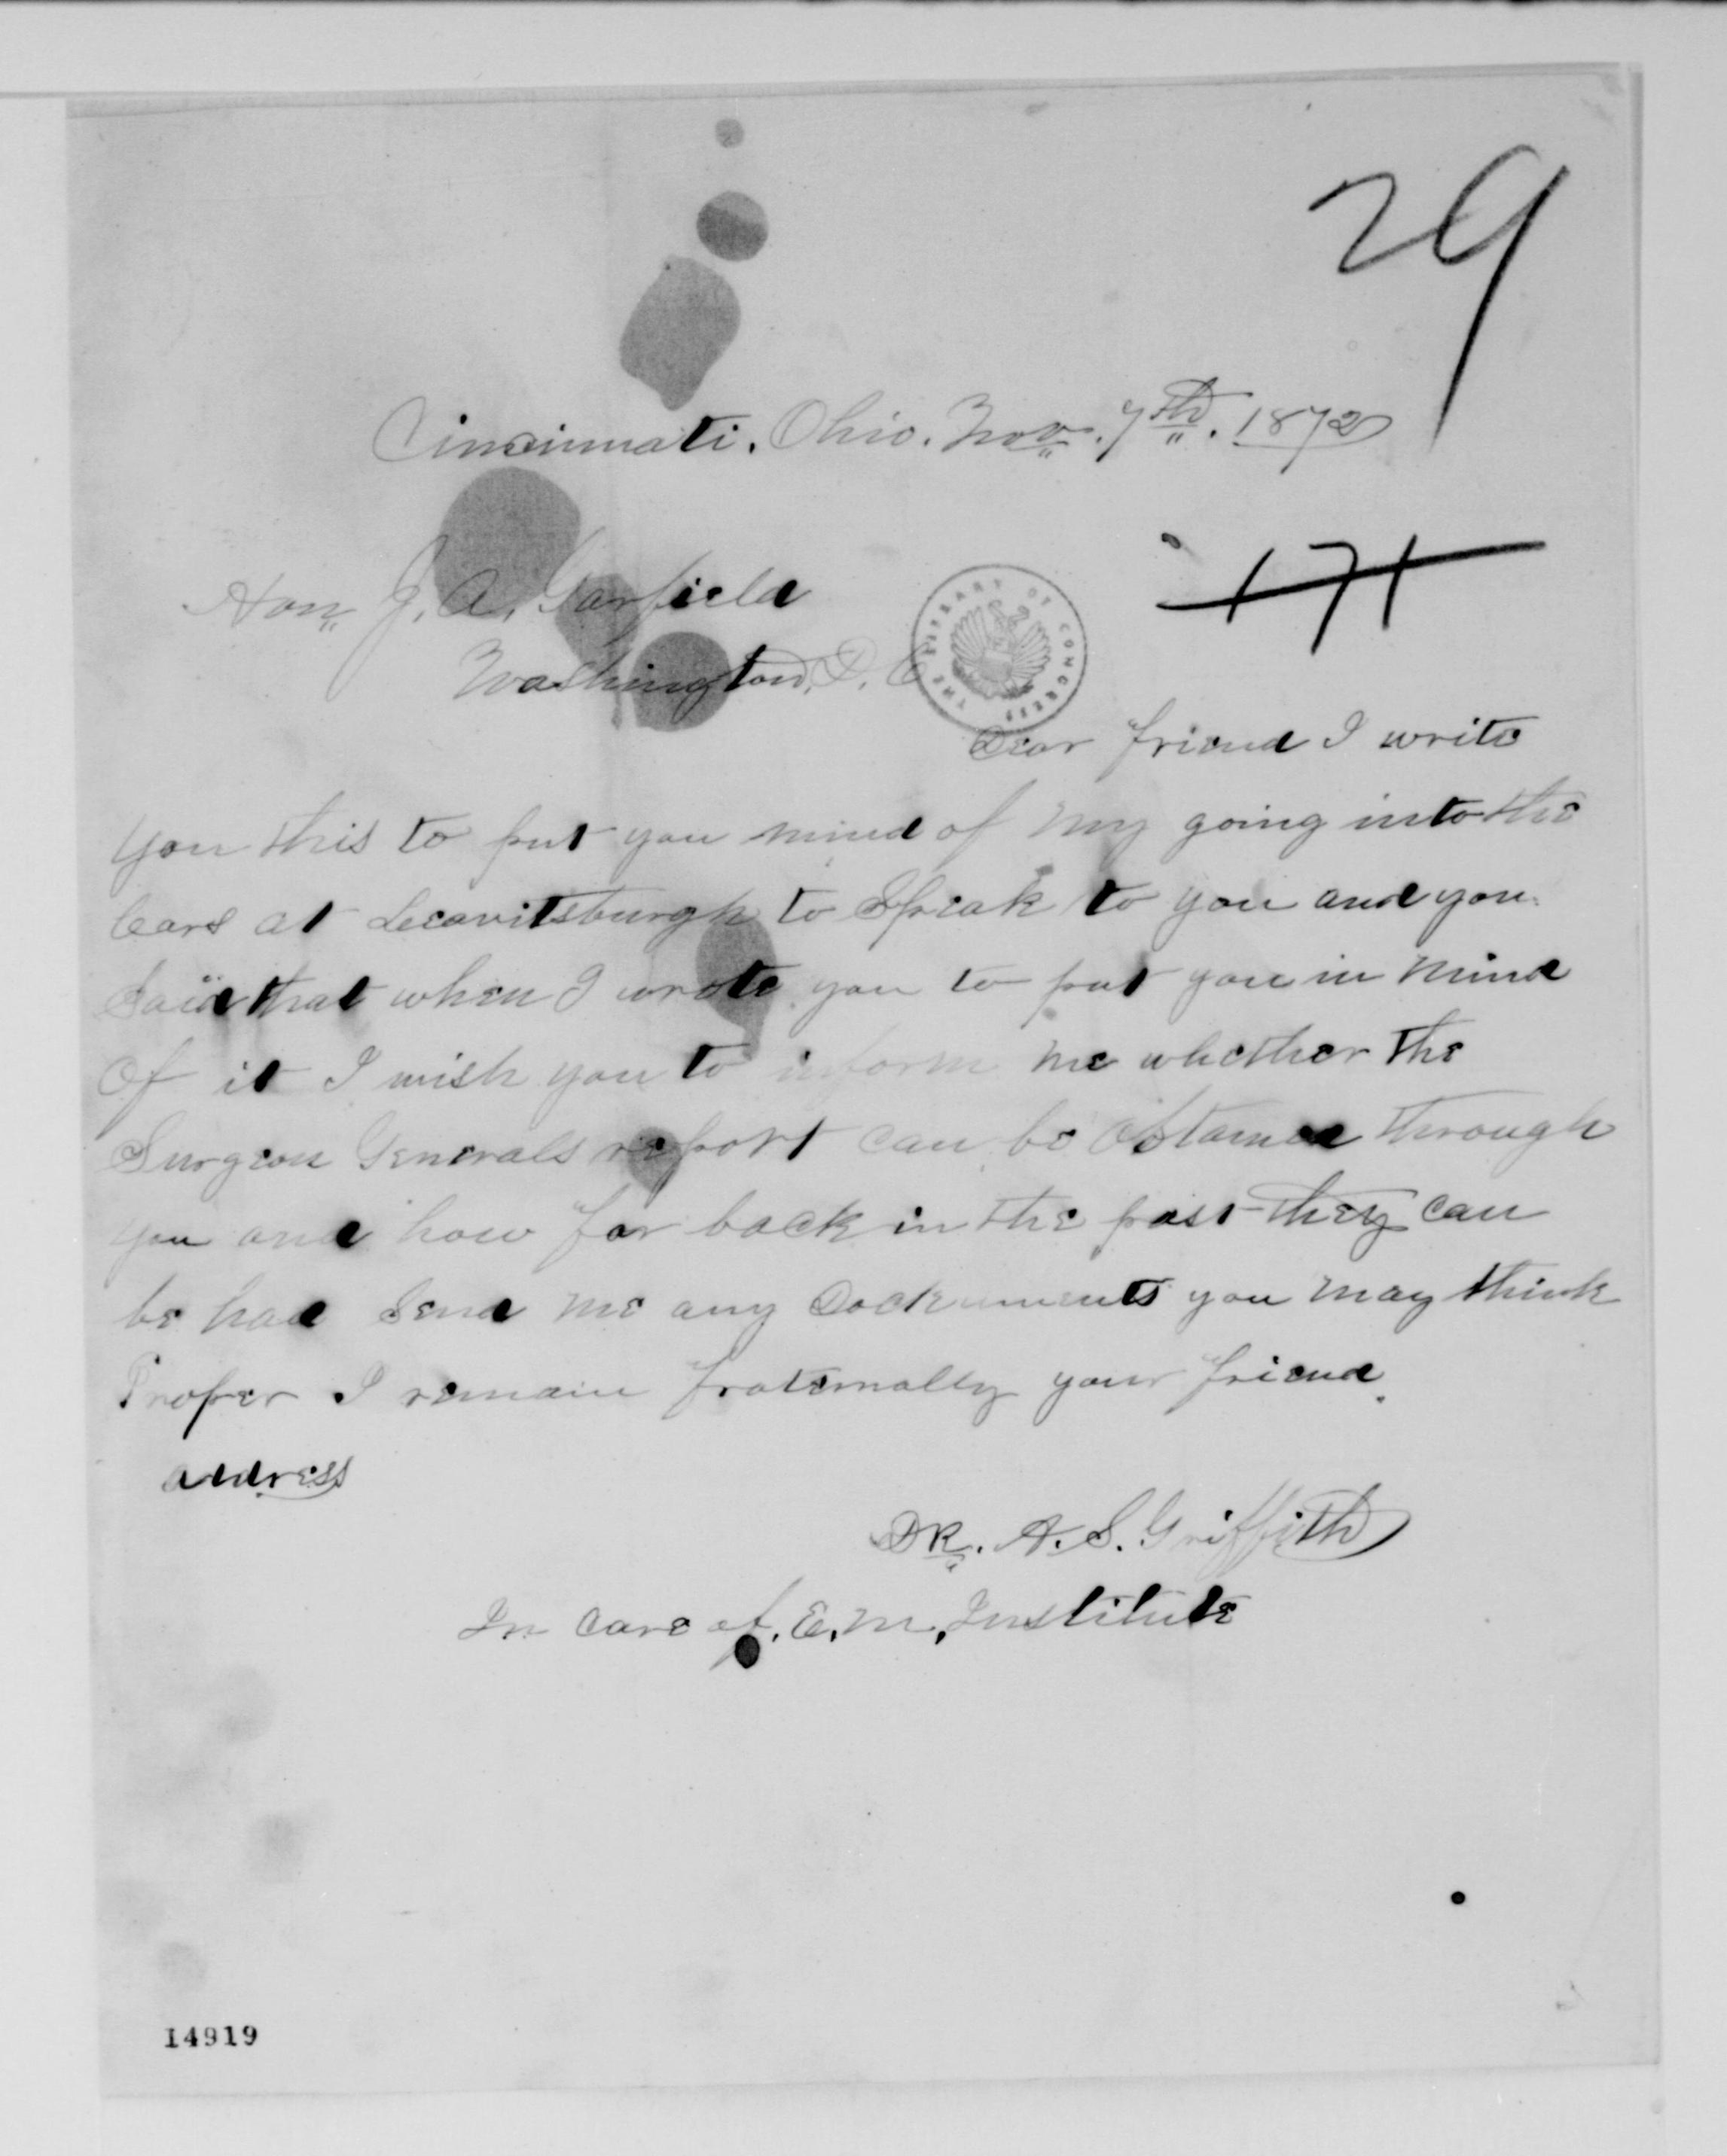 29
Cincinnati. Ohio. Nov. 7th. 1872
171
Hon. J. A. Garfield
Washington, D. C
THE LIBRARY OF CONGRESS
Dear friend I write
you this to put you mind of my going into the
Cars at Leavittsburgh to Speak to you and you
Said that when I wrote you to put you in mind
Of it I wish you to inform me whether the
Surgeon Generals report can be obtained through
you and how far back in the past they can
be had Send me any Dockuments you may think
Proper I remain fraternally your friend.
address
DR. A. S. Griffith
In care of. E. M. Institute
14919